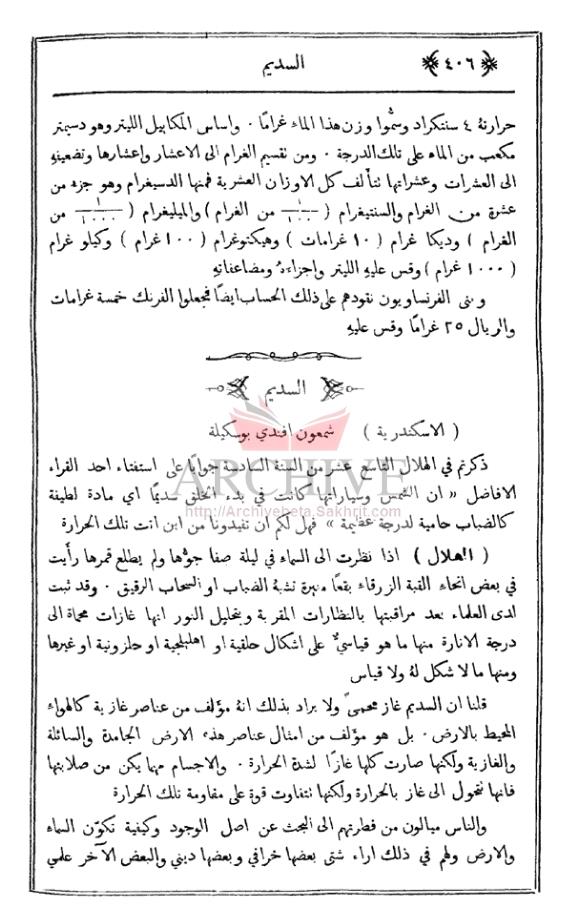 ﴿ ٤٠٦ ﴾ السديم
حرارتهُ ٤ سنتكراد وسمُّوا وزن هذا الماء غرامًا ٠ واساس المكاييل الليتر وهو دسيمتر
مكعب من الماء على تلك الدرجة ٠ ومن تقسيم الغرام الى الاعشار واعشارها وتضعيفهِ
الى العشرات وعشراتها تتألف كل الاوزان العشرية فمنها الدسيغرام وهو جزء من
عشرة من الغرام والسنتيغرام ( ١/١٠٠ من الغرام ) والميليغرام ( ١/١٠٠٠ من
الغرام ) وديكا غرام ( ١٠ غرامات ) وهيكتوغرام ( ١٠٠ غرام ) وكيلو غرام
( ١٠٠٠ غرام ) وقس عليهِ الليتر واجزاءهُ ومضاعفاتهِ
وبنى الفرنساويون نقودهم على ذلك الحساب ايضًا فجعلوا الفرنك خمسة غرامات
والريال ٢٥ غرامًا وقس عليهِ
﴿ السديم ﴾
( الاسكندرية ) شمعون افندي بوسكيلة
ذكرتم في الهلال التاسع عشر من السنة السادسة جوابًا على استفتاء احد القراء
الافاضل « ان الشمس وسياراتها كانت في بدء الخلق سديمًا اي مادة لطيفة
كالضباب حامية لدرجة عظيمة » فهل لكم ان تفيدونا من اين اتت تلك الحرارة
( الهلال ) اذا نظرت الى السماء في ليلة صفا جوُّها ولم يطلع قمرها رأيت
في بعض انحاء القبة الزرقاء بقعًا منيرة تشبهُ الضباب او السحاب الرقيق ٠ وقد ثبت
لدى العلماء بعد مراقبتها بالنظارات المقربة وبتحليل النور انها غازات محماة الى
درجة الانارة منها ما هو قياسيٌّ على اشكال حلقية او اهليلجية او حلزونية او غيرها
ومنها ما لا شكل لهُ ولا قياس
قلنا ان السديم غاز محمىً ولا يراد بذلك انهُ مؤلف من عناصر غازية كالهواء
المحيط بالارض ٠ بل هو مؤلف من امثال عناصر هذه الارض الجامدة والسائلة
والغازية ولكنها صارت كلها غازًا لشدة الحرارة ٠ والاجسام مهما يكن من صلابتها
فانها تتحول الى غاز بالحرارة ولكنها تتفاوت قوة على مقاومة تلك الحرارة
والناس ميالون من فطرتهم الى البحث عن اصل الوجود وكيفية تكوّن السماء
والارض ولهم في ذلك اراء شتى بعضها خرافي وبعضها ديني والبعض الآخر علمي
ARCHIVE
http://Archivebeta.Sakhrit.com